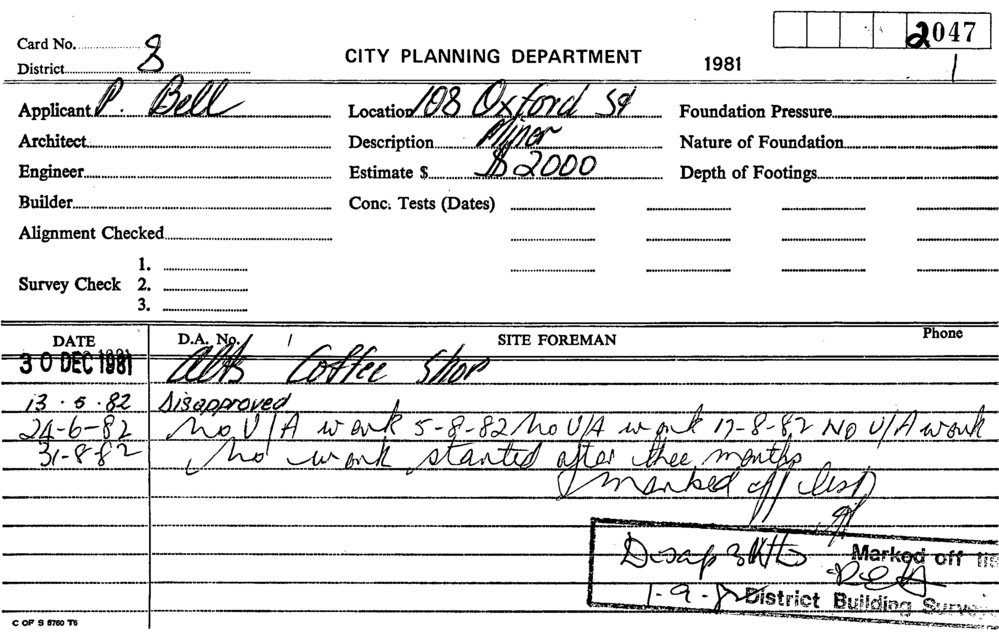 2047
Card No. 8
District
CITY PLANNING DEPARTMENT 1981 1
Applicant P. Bell Location 108 Oxford St Foundation Pressure
Architect Description Minor Nature of Foundation
Engineer Estimate $ $2000 Depth of Footings
Builder Conc. Tests (Dates)
Alignment Checked
Survey Check 1.
2.
3.
DATE D.A. No. SITE FOREMAN Phone
30 DEC 1981 Alts Coffee Shop
13.5.82 Disapproved
24-6-82 No U/A work 5-8-82 No U/A work 17-8-82 No U/A work
31-8-82 No work started after thee months
(marked off list)
Disap 3 Mths Marked off lis
1-9-82 District Building Survey
C OF S 6760 T6